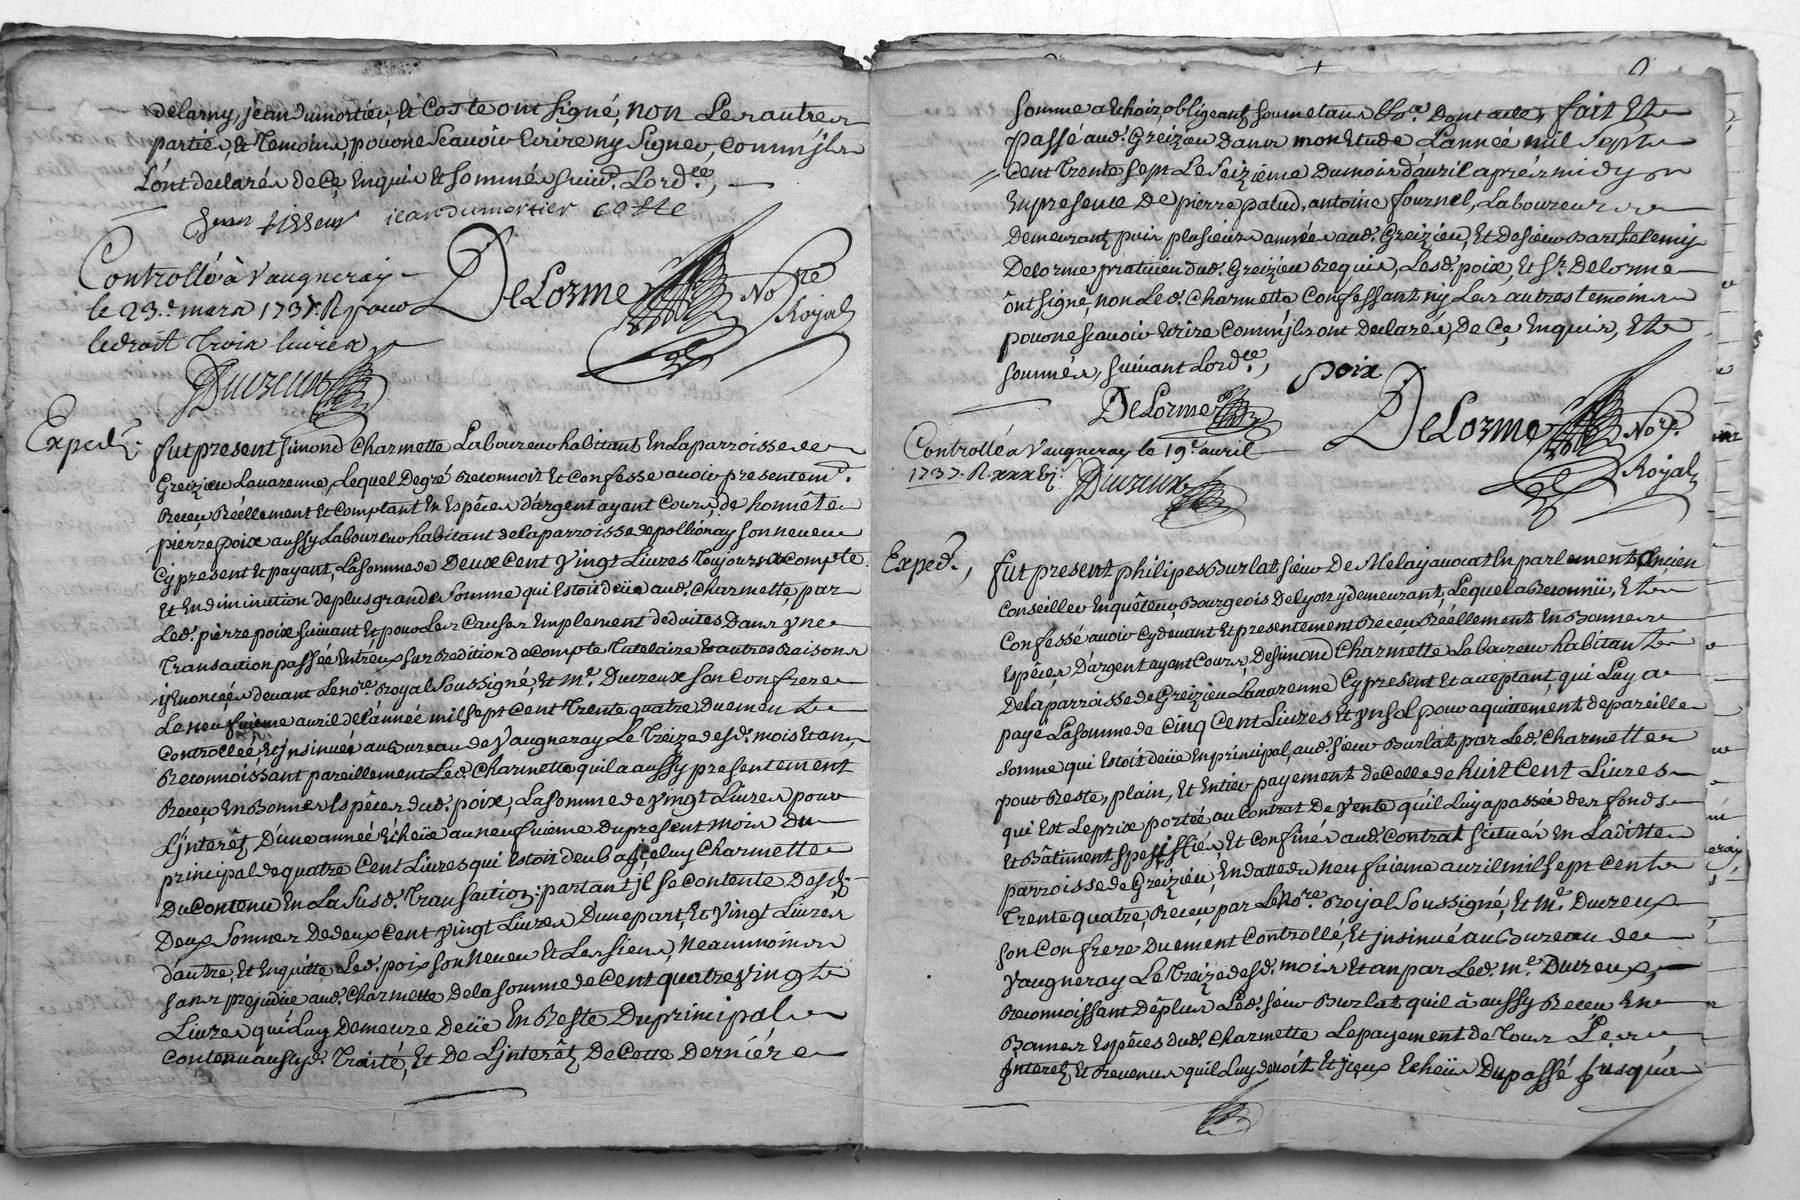 delarny, jean Dumortier, Et Coste ont signé, non Les autres
parties, Et Temoins, pour ne Scavoir Ecrire ny signer, Comm'jls
L'ont declarés de Ce, Enquis Et sommés suiv.t Lord.ce,
jean tisseur jean dumortier coste
Controllé à Vaugneray
le 23.e mars 1737. R pour
ledroit trois livres
DeLorme No.re
Royal
Ducreux
Exped.é
fut present simond Charmette Laboureur habitant En La parroisse de
Greizieu Lavarenne, Lequel De gré Reconnoit Et Confesse avoir presentem.t
Receu Réellement Et Comptant En Espêces d'argent ayant Cours, de honnête
pierre poix aussy Laboureur habitant de la parroisse de pollionay son neveu
Cy present Et payant, La somme de Deux Cent Vingt Livres Toujours à Compte
Et En diminution de plus grande somme qui Estoit deüe aud. Charmette, par
Led. pierre poix suivant Et pour Les Causes Emplement déduites Dans Vne
Transaction passée Entr'eux sur Reddition de compte Tutelaire Et autres Raisons
y Enoncées devant Le no.re Royal Soussigné, Et M.e Ducreux son Confrere
Le neufvieme avril de l'année mil sept Cent Trente quatre Duement
Controlleé, Et jnsinuée au Bureau de Vaugneray Le Treize desd. mois Et an,
Reconnoissant pareillement Led. Charmette qu'il a aussy presentement
Receu En Bonnes Espêces dud. poix, La somme de Vingt Livres pour
L'jnterêt D'une année Echeüe au neufvieme du present mois du
principal de quatre Cent Livres qui Estoit deub à jceluy Charmette
Du Contenu En La Susd. Transaction; partant jl se Contente Desd.
Deux Sommes De deux Cent Vingt Livres D'une part, Et Vingt Livres
d'autre, Et En quitte Led. poix son Neveu Et Les siens, Neammoins
sans prejudice aud. Charmette De la somme de Cent quatre Vingt
Livres qui Luy Demeure Deüe En Reste Du principal
Contenu ausd. Traité, Et De L'jnterêt De Cette Derniére
somme à Echoir obligeant soumetant &c.a Dont acte, fait Et
passé aud. Greizieu Dans mon Etude L'année mil Sept
Cent Trente sept Le Seizieme Du mois d'avril aprés midy
En presence De pierre palud, antoine fournel, Laboureurs
Demeurant puis plusieurs années aud. Greizieu, Et De sieur Barthelemy
Delorme praticien dud. Greizieu Requis, Lesd. poix, Et S.r Delorme
ont signé, non Led. Charmette Confessant ny Les autres temoins
pour ne scavoir Ecrire Comm'jls ont Declarés, De Ce, Enquis, Et
sommés, suivant Lord.ce,
poix
DeLorme
DeLorme No.re
Royal
Controllé à Vaugneray le 19.e avril
1737. R. xxx
Ducreux
Exped.é,
fut present philipes Burlat sieur De Melay avocat En parlement Ancien
Conseiller Enquêteur, Bourgeois De lyon y demeurant, Lequel a Reconnü, Et
Confessé avoir Cy devant Et presentement Receu Réellement En Bonnes
Espêces D'argent ayant Cours, De simond Charmette Laboureur habitant
De la parroisse de Greizieu Lavarenne Cy present Et acceptant, qui Luy a
payé La somme de Cinq Cent Livres Et Vn sol pour aquittement de pareille
somme qui Estoit deüe En principal, aud. sieur Burlat par Led. Charmette
pour Reste, plain, Et Entier payement de Celle de huit Cent Livres
qui Est Le prix porté au Contrat De Vente qu'il Luy a passée des fonds
Et Bâtiment Speciffiés, Et Confinés aud. Contrat scitués En Laditte
parroisse de Greizieu, En datte du neufvieme avril mil sept cent
Trente quatre, Receu par Le No.re Royal Soussigné, Et M.e Ducreux
son Confrere Duement Controllé, Et jnsinué au Bureau de
Vaugneray Le Treize desd. mois Et an par Led. M.e Ducreux,
Reconnoissant De plus Led. sieur Burlat qu'il à aussy Receu En
Bonnes Espêces dud. Charmette Le payement de Tous Les
jnterêt, Et Revenus qu'il Luy devoit Et jceux Echeüs Du passé jusqu'à